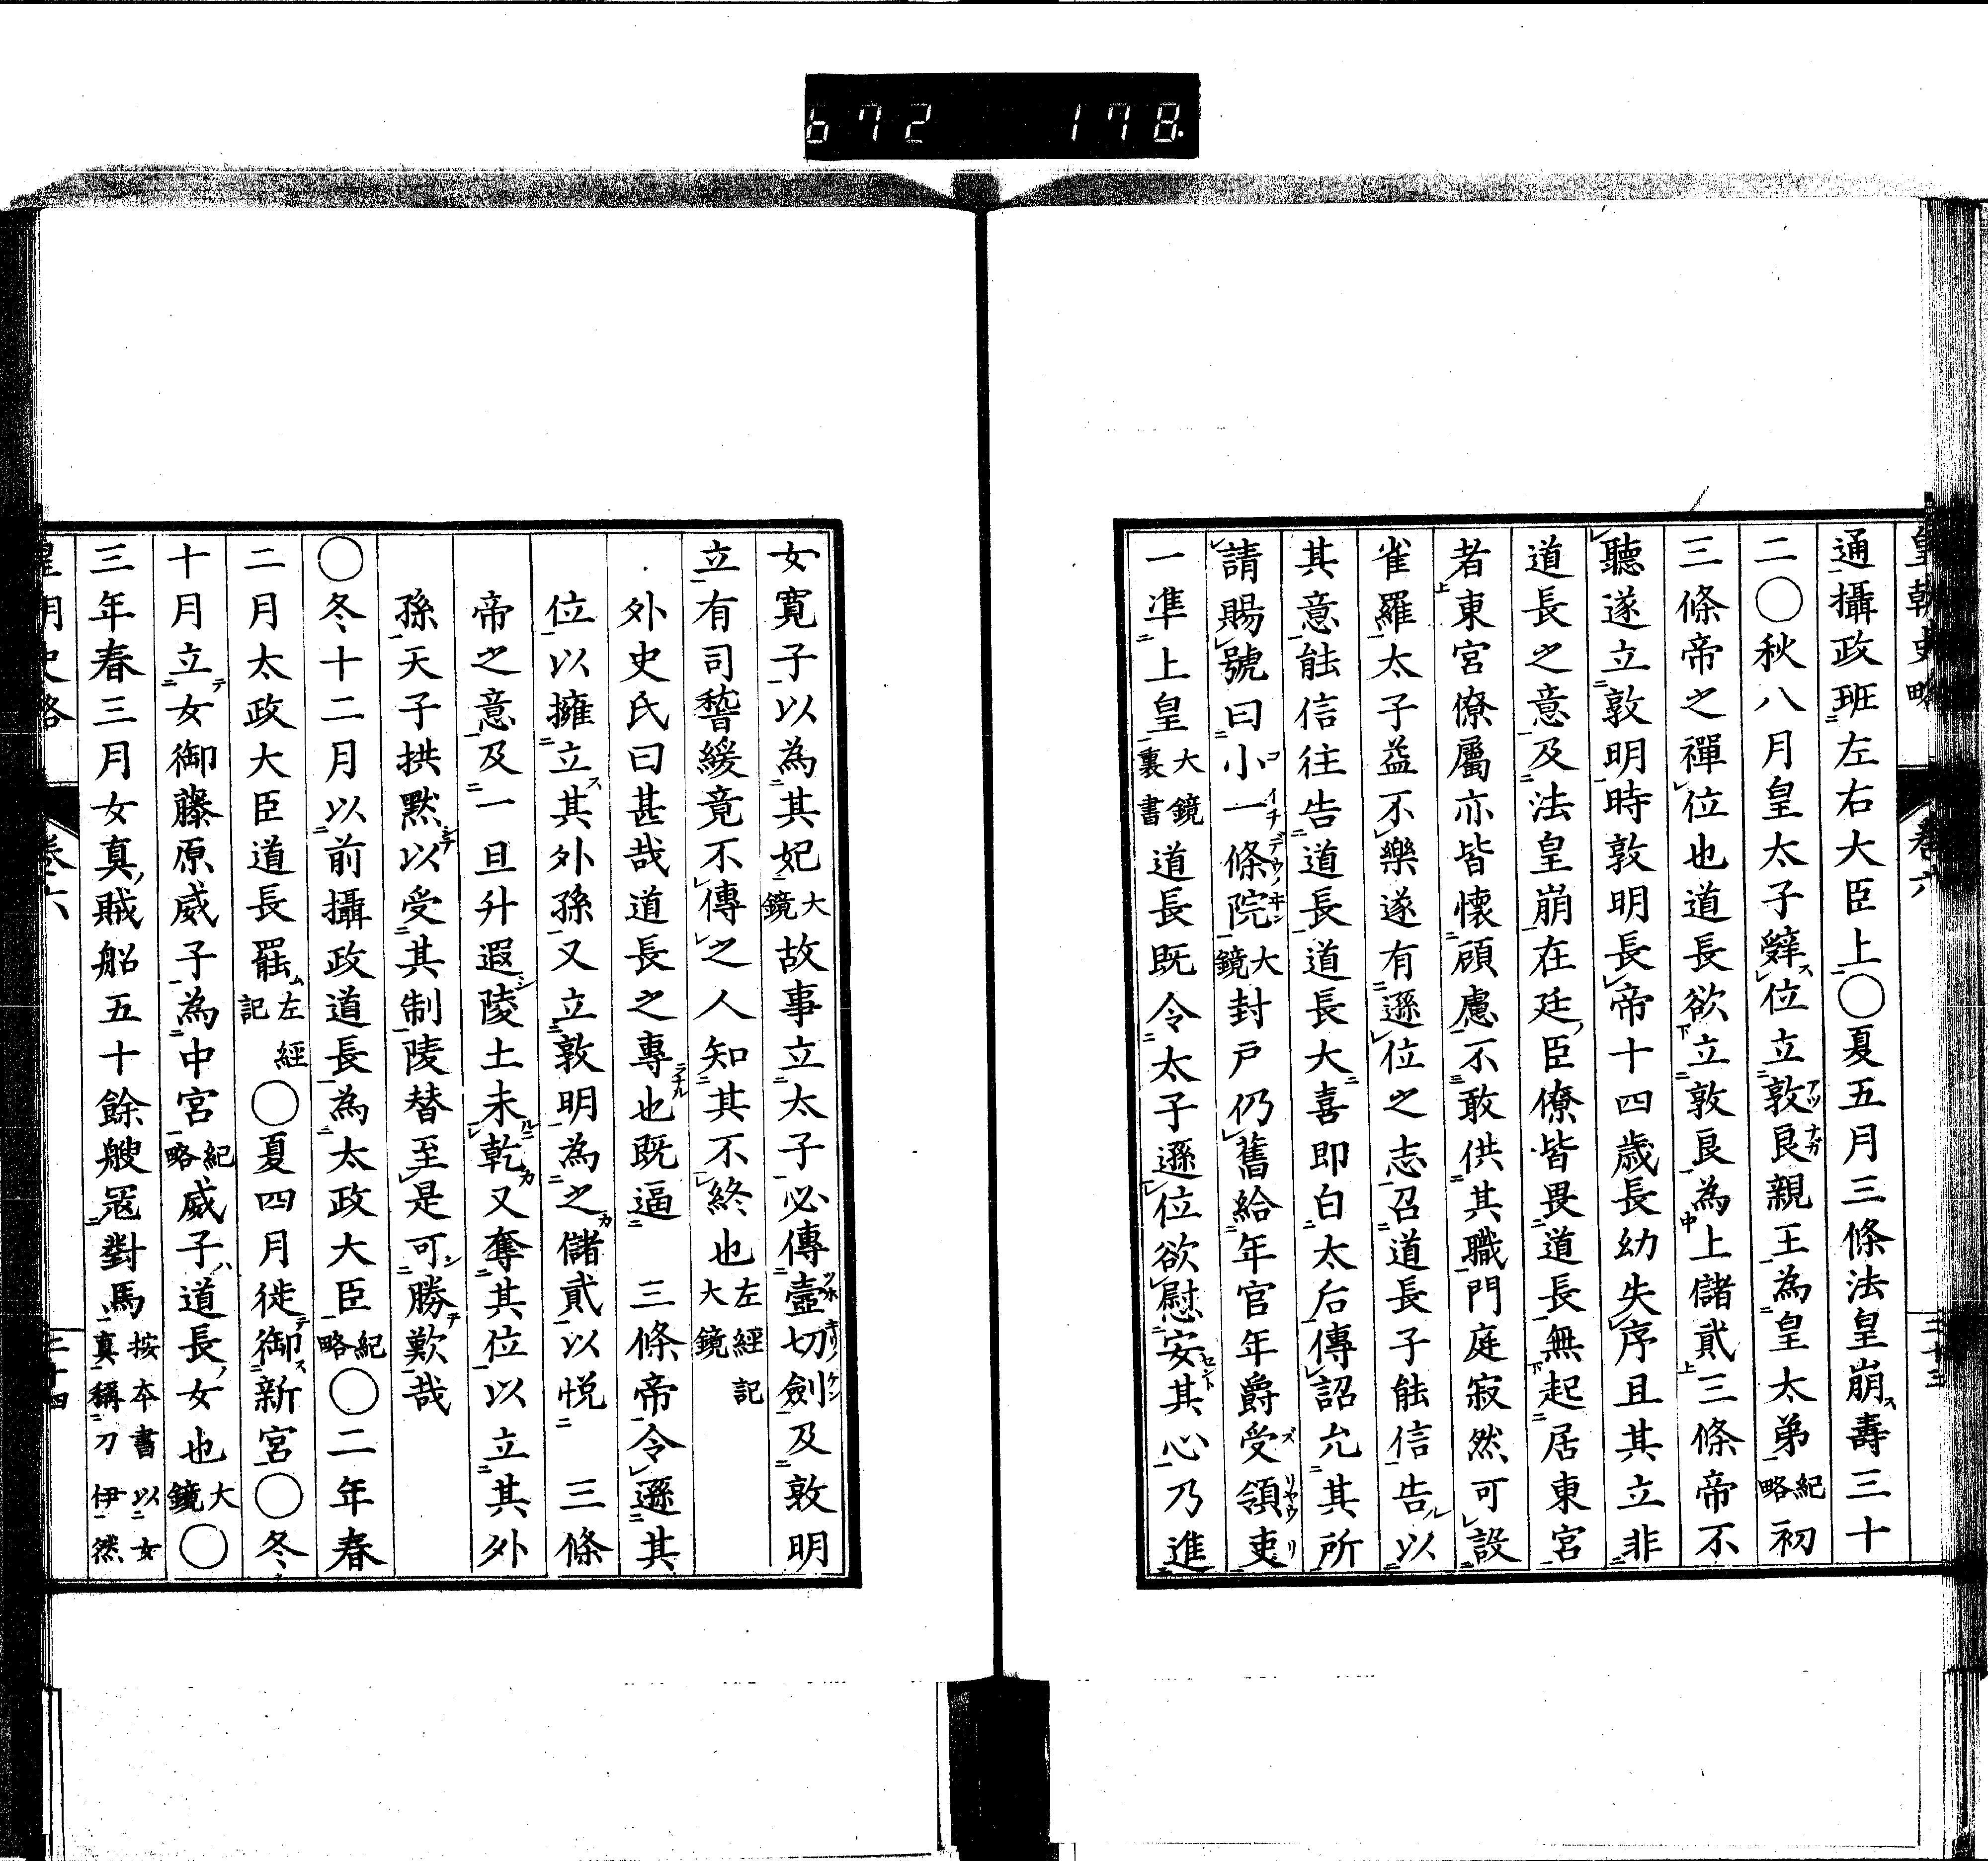 672 178.
皇朝史略 卷六 二十三
通攝政班左右大臣上○夏五月三條法皇崩壽三十
二○秋八月皇太子辭位立敦良親王為皇太弟紀略初
三條帝之禪位也道長欲立敦良為上儲貳三條帝不
聽遂立敦明時敦明長帝十四歲長幼失序且其立非
道長之意及法皇崩在廷臣僚皆畏道長無起居東宮
者東宮僚屬亦皆懷顧慮不敢供其職門庭寂然可設
雀羅太子益不樂遂有遜位之志召道長子能信告以
其意能信往告道長道長大喜即白太后傳詔允其所
請賜號曰小一條院大鏡封戶仍舊給年官年爵受領吏
一準上皇大鏡裏書道長既令太子遜位欲慰安其心乃進
女寬子以為其妃大鏡故事立太子必傳壺切劍及敦明
立有司稽緩竟不傳之人知其不終也左經記大鏡
外史氏曰甚哉道長之專也既逼 三條帝令遜其
位以擁立其外孫又立敦明為之儲貳以悅 三條
帝之意及一旦升遐陵土未乾又奪其位以立其外
孫天子拱默以受其制陵替至是可勝歎哉
○冬十二月以前攝政道長為太政大臣紀略○二年春
二月太政大臣道長罷左經記○夏四月徙御新宮○冬
十月立女御藤原威子為中宮紀略威子道長女也大鏡○
三年春三月女真賊船五十餘艘寇對馬按本書以女真稱刀伊然
皇朝史略 卷六 二十四